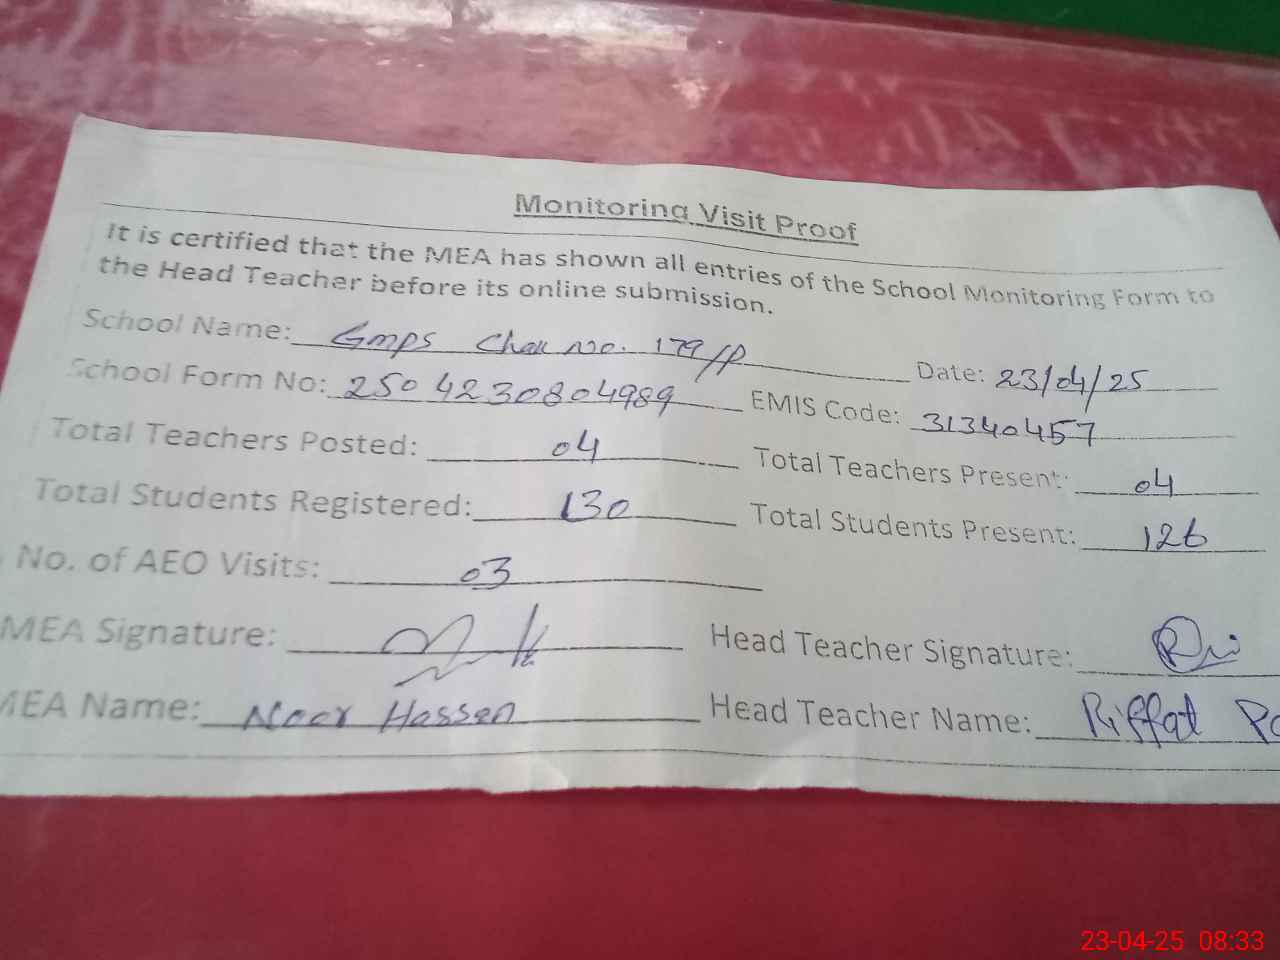 Monitoring Visit Proof
It is certified that the MEA has shown all entries of the School Monitoring Form to
the Head Teacher before its online submission.
School Name: Gmps Chak No. 179/P Date: 23/04/25
School Form No: 2504230804989 EMIS Code: 31340457
Total Teachers Posted: 04 Total Teachers Present: 04
Total Students Registered: 130 Total Students Present: 126
No. of AEO Visits: 03
MEA Signature: Head Teacher Signature:
MEA Name: Noor Hassan Head Teacher Name: Riffat
23-04-25 08:33